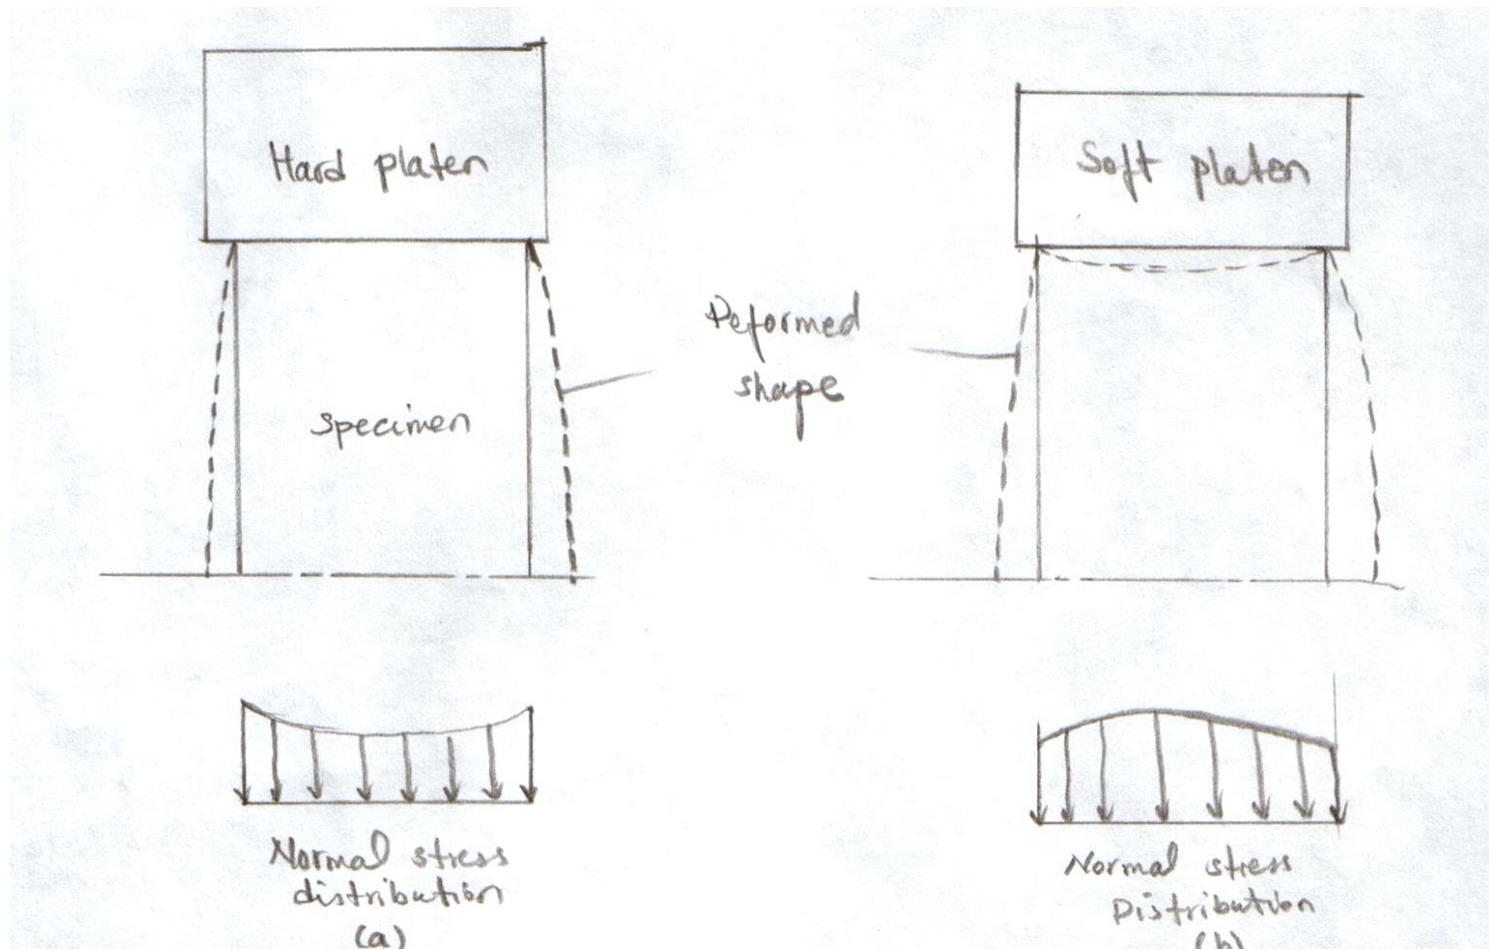 Hard platen
Soft platen
Deformed
shape
specimen
Normal stress
distribution
(a)
Normal stress
Distribution
(b)